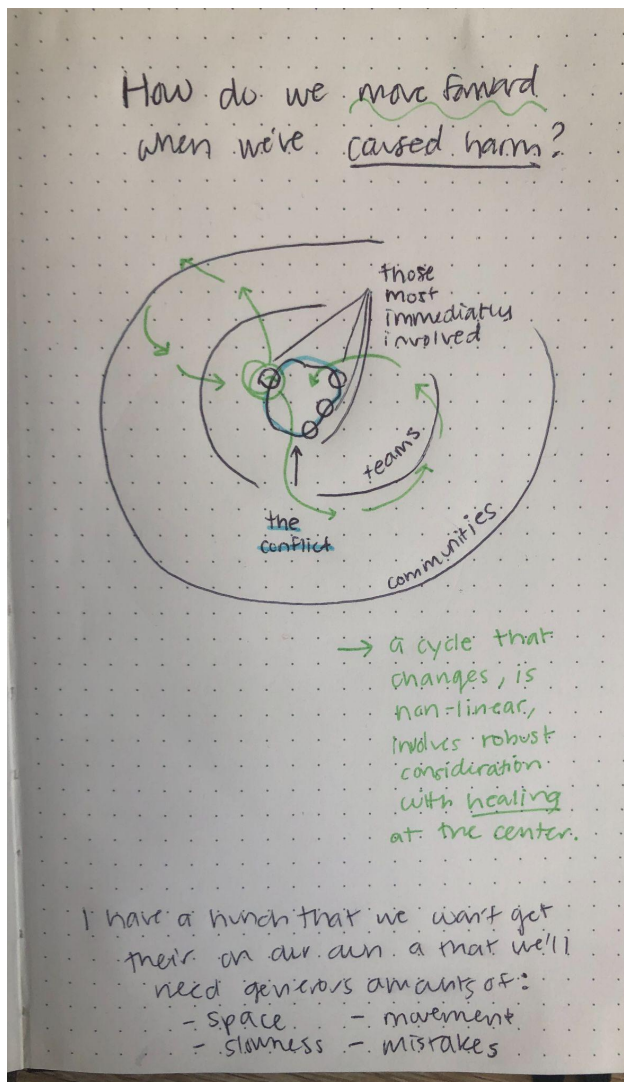 How do we move forward
when we've caused harm?
those
most
immediately
involved
teams
the
conflict
communities
→ a cycle that
changes, is
non-linear,
involves robust
consideration
with healing
at the center.
I have a hunch that we won't get
their on our own & that we'll
need generous amounts of:
- space - movement
- slowness - mistakes